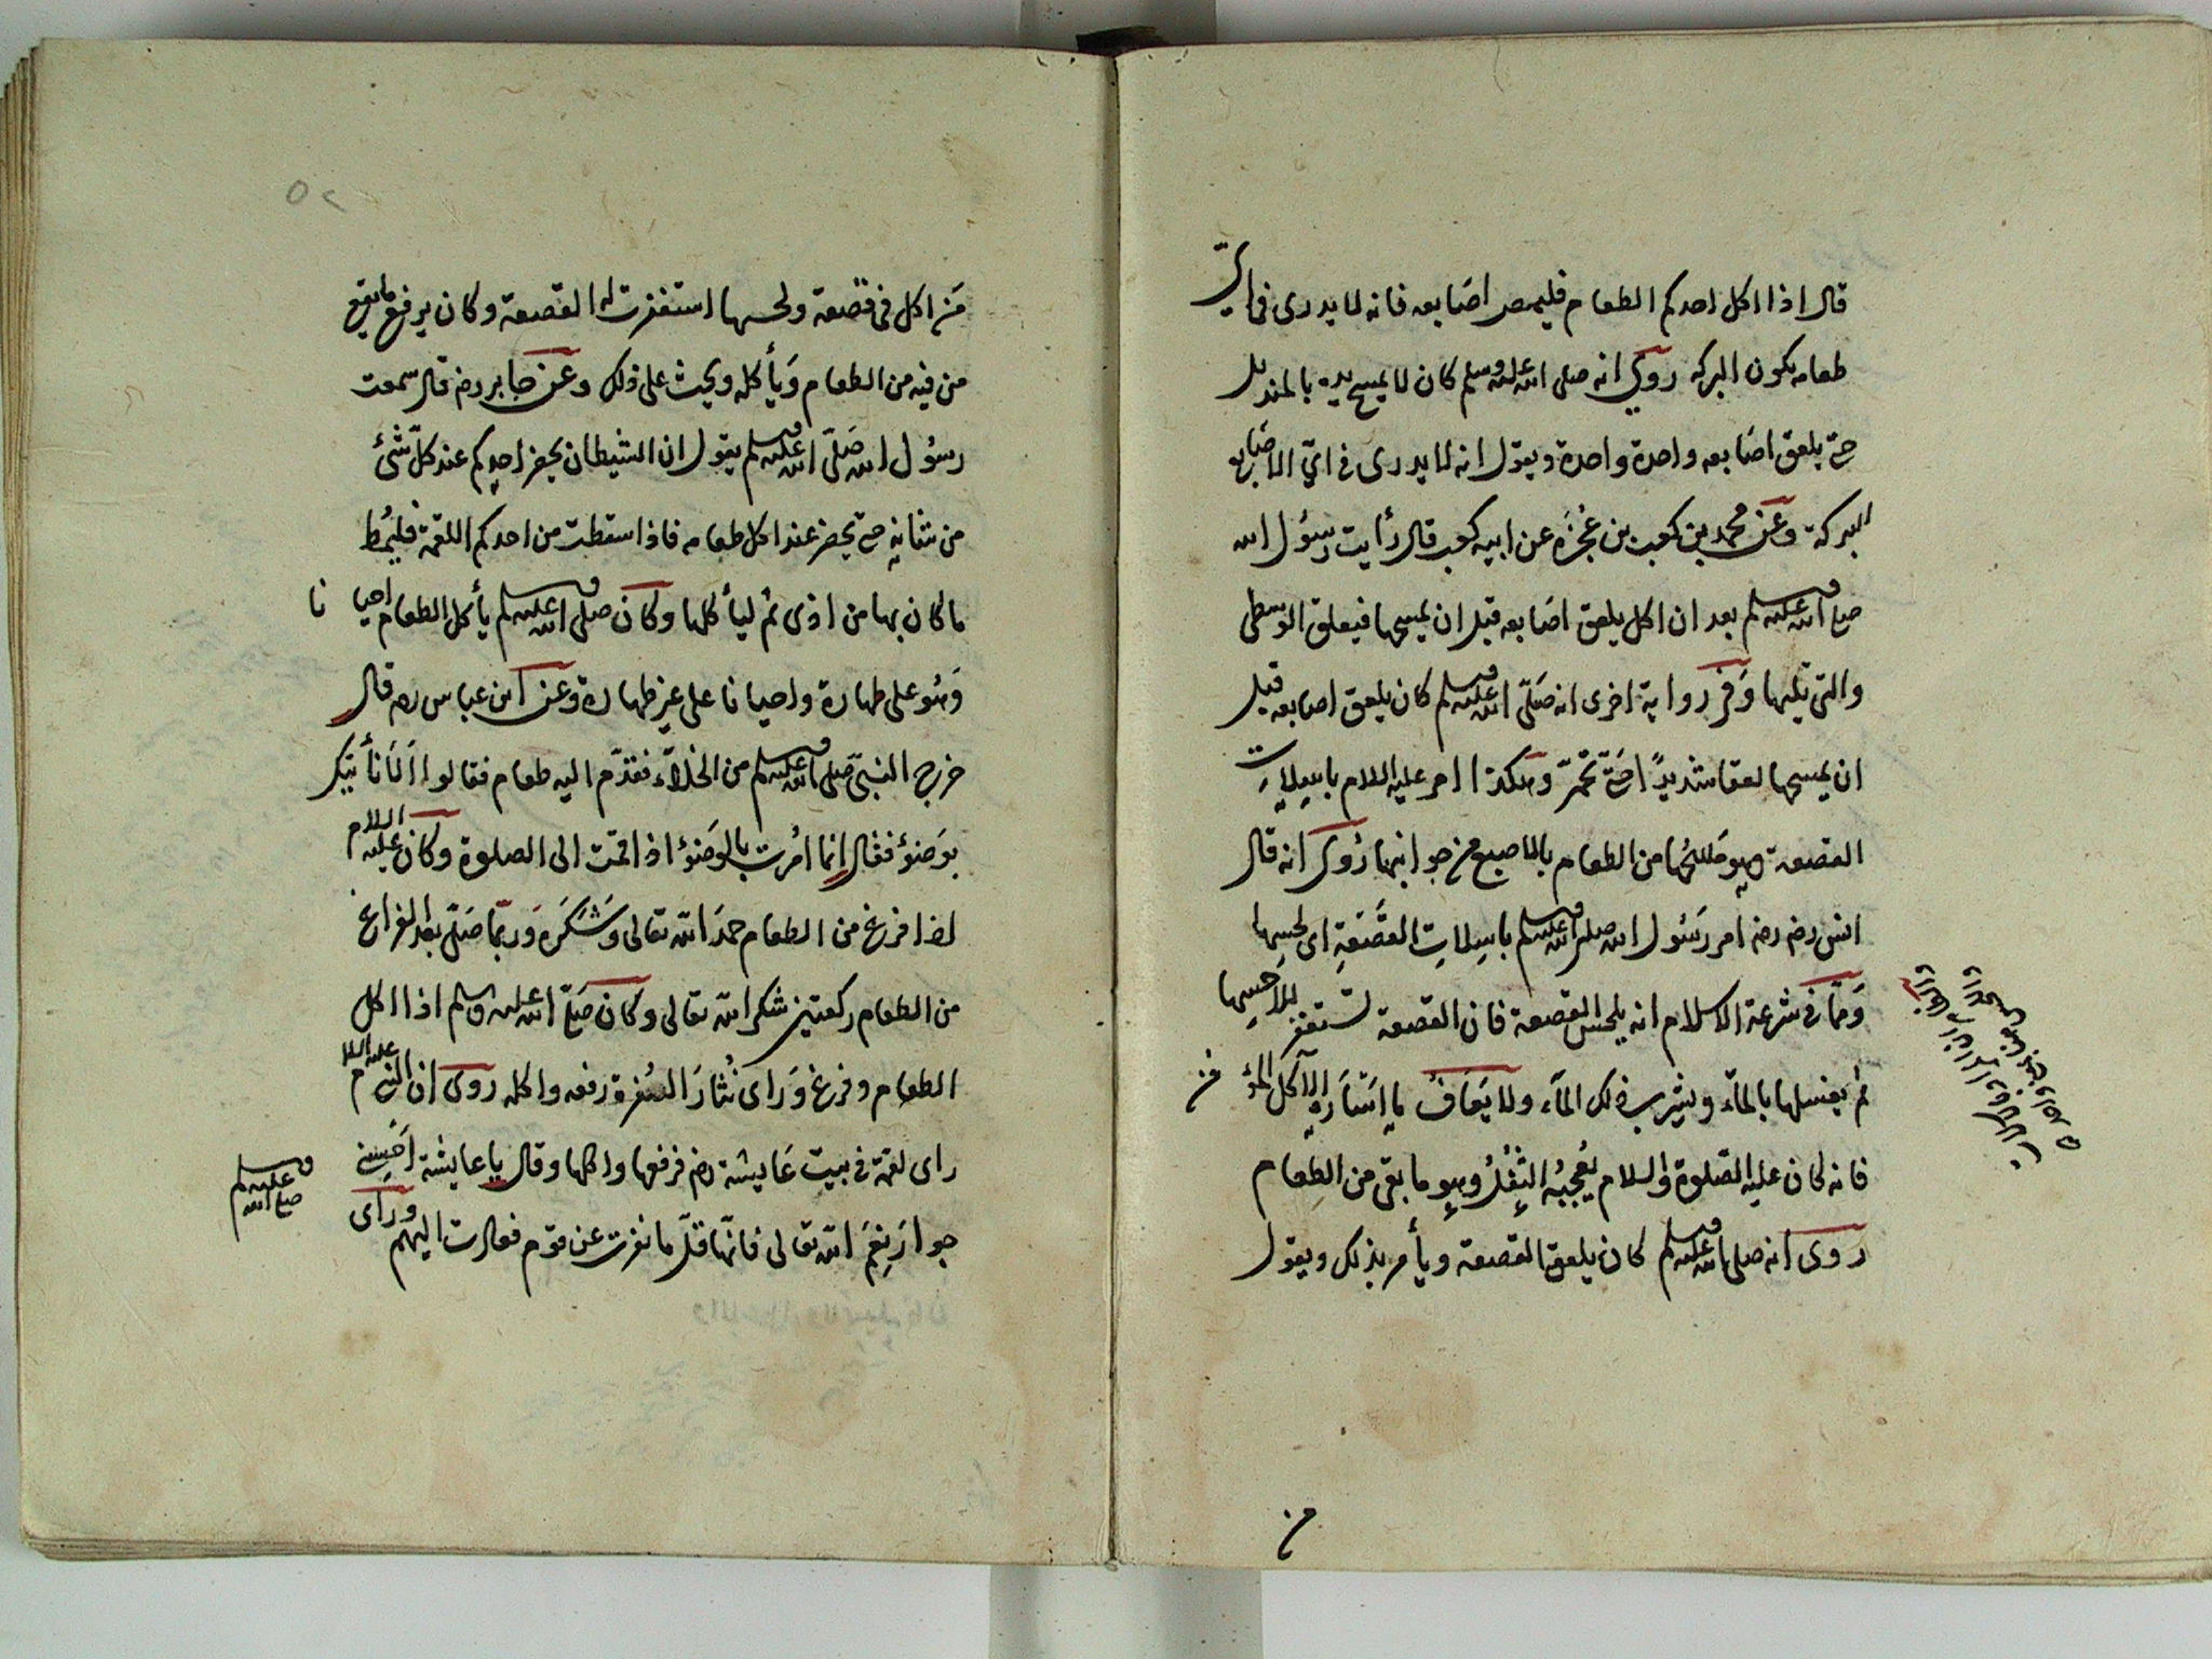 قال اذا اكل احدكم الطعام فليمص اصابعه فانه لا يدرى فى اى
طعامه يكون البركه روى انه صلى الله عليه وسلم كان لا يمسح يده بالمنديل
حتى يلعق اصابعه واحدة واحدة ويقول انه لا يدرى فى اىّ الاصابع
البركة وعن محمد بن كعب بن عُجْرَه عن ابيه كعب قال رأيت رسول الله
صلى الله عليه وسلم بعد ان اكل يلعق اصابعه قبل ان يمسحها فيعلق الوسطى
والتى تليها وَفى رواية اخرى انه صَلّى الله عليه وسلم كان يلعق اصابعه قبل
ان يمسحها لعقا شديدًا حتّى تحمّر وهكذا امر عليه السلام باسلات
القصعة وهو مَسْحُها من الطعام بالاصبع من جوانبها رُوى انه قال
انس رضه رضه امر رَسُول الله صلى الله عليه وسلم باسِلاتِ القَصْعَةِ اى لحسها
وَممّا فى شرعة الاسلام انه يلحس القصعة فان القصعة تستغفر للاحسها
ثم يغسلها بالمآء ويشرب ذلك المآء ولا يَعَافُ
فانه كان عليه الصّلوة والسلام يُعْجِبُه الثُّفْلُ وهو ما بقى من الطعام
روى انه صلى الله عليه وسلم كان يلعق القصعة ويأمر بذلك ويقول
من
٥٢
مَن اكل فى قصعة ولحسها استغفرت له القصعة وكان يرفع ما يقع
من فيه من الطعام وَيأكله ويحث على ذلك وعن جابر رضه قال سمعت
رسُول الله صَلّى الله عليه وسلم يقول ان الشيطان يحضر احدكم عند كلّ شئ
من شانه حتى يحضر عند اكل طعامه فاذا سقطت من احدكم اللقمة فليُمط
ما كان بها من اذى ثم ليأكلها وكان صلى الله عليه وسلم يأكل الطعام احيانا
وَهُو على طهارة واحيانا على غير طهارة وعن ابن عباس رضه قال
خرج النبىّ صلى الله عليه وسلم من الخلآء فقدّم اليه طعام فقالوا اَلَا نأتيك
بوَضوُء فقال اِنما امُرت بالوَضوُء اذا قمت الى الصلوة وكان عليه السلام
اذا فرغ من الطعام حمدَ الله تعالى وَشَكَرَه وَربّما صَلّى بعد الفراغ
من الطعام ركعتين شكر الله تعالى وكان صَلّى الله عليه وسلم اذا اكل
الطعام وفرغ وَراى نُثارَ السُفرة رفعه واكله روى ان النبى عليه السلام
راى لقمة فى بيت عَايشة رضه فرفعها واكلها وقال يا عايشة اَحْسِنى
جوارَ نِعَمِ الله تعالى فانّها قلّ ما نفرت عن قوم فعادت اليهم وراى
صلى الله عليه وسلم